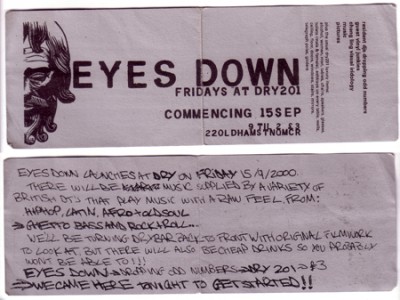 EYES DOWN
FRIDAYS AT DRY201
COMMENCING 15SEP
22OLDHAMSTNQMCR
resident djs dropping odd numbers
guest vinyl junkies
chung ling visual indology
music
pictures
EYES DOWN LAUNCHES AT DRY ON FRIDAY 15/9/2000.
THERE WILL BE MUSIC SUPPLIED BY A VARIETY OF
BRITISH DJ'S THAT PLAY MUSIC WITH A RAW FEEL FROM:
HIPHOP, LATIN, AFRO + OLD SOUL
GHETTO BASS AND ROCK + ROLL...
WE'LL BE TURNING DRYBAR BACK TO FRONT WITH ORIGINAL FILMWORK
TO LOOK AT, BUT THERE WILL ALSO BE CHEAP DRINKS SO YOU PROBABLY
WONT BE ABLE TO!!
EYES DOWN DROPPING ODD NUMBERS DRY 201 £3
WE CAME HERE TONIGHT TO GET STARTED!!